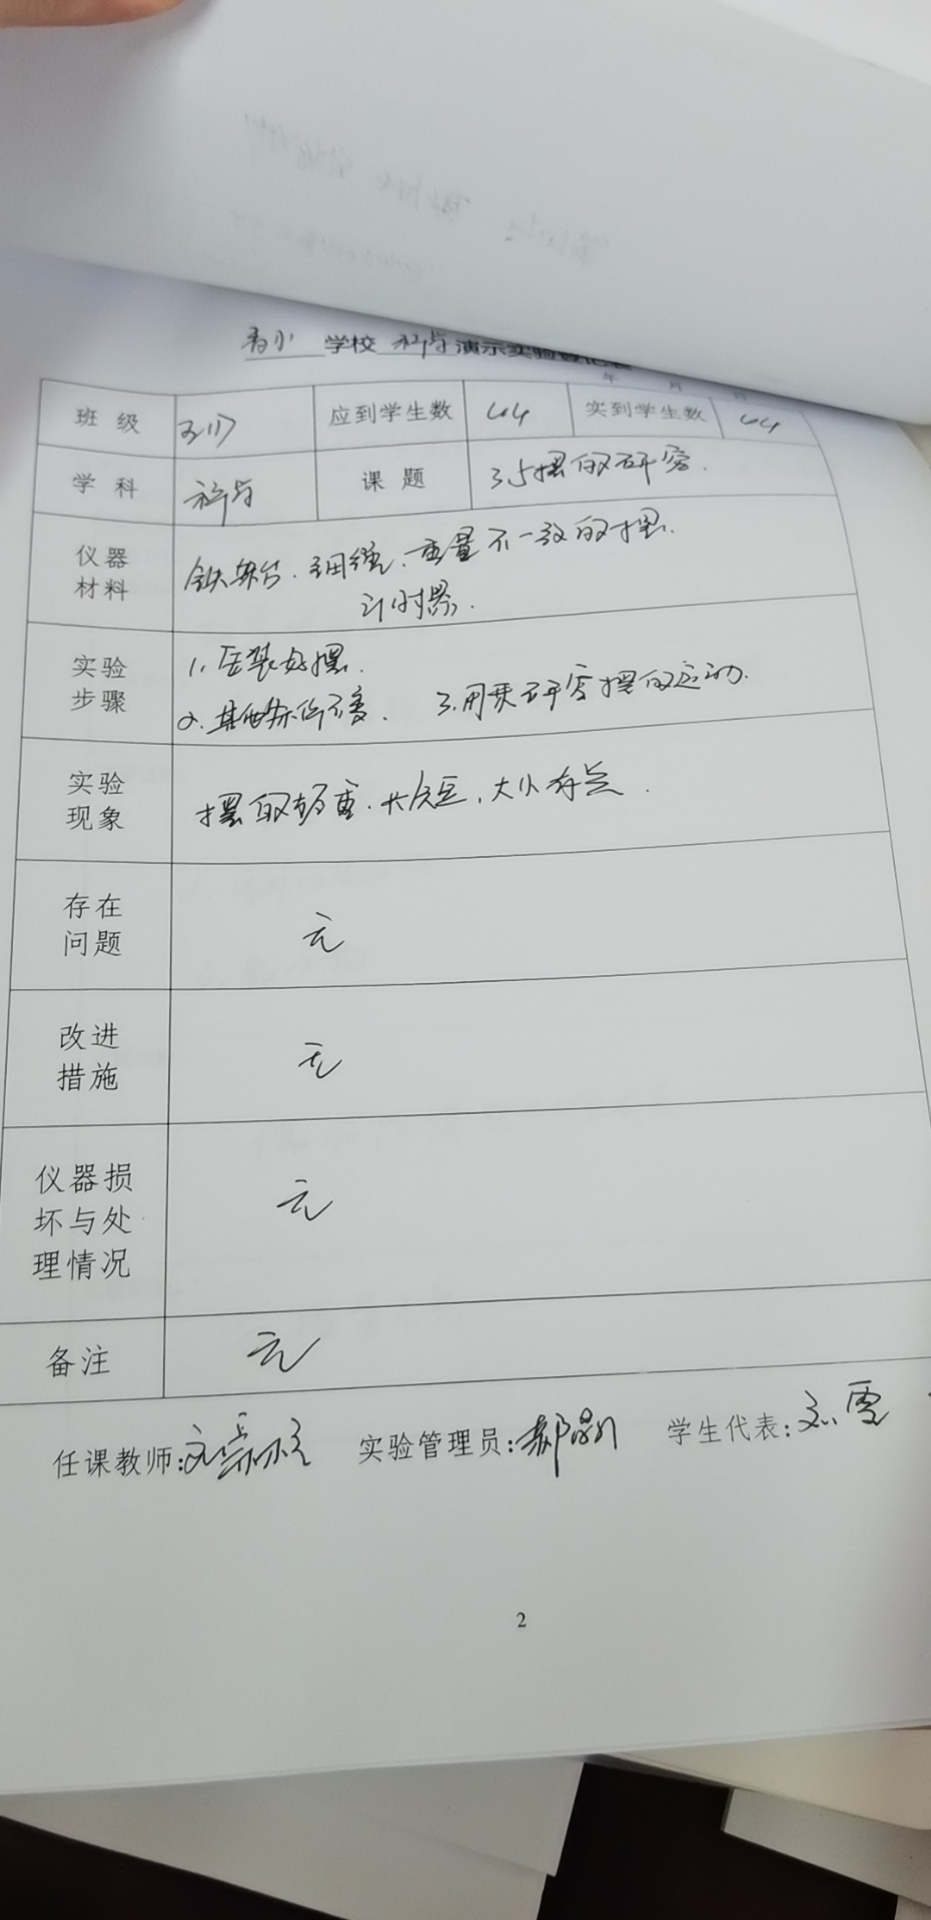 学校 科学 演示实验登记表
年 月 日
班级 应到学生数 44 实到学生数 44
学科 科学 课题 3.5摆的研究.
仪器材料 铁架台.细绳.重量不一致的摆.
计时器.
实验步骤 1.安装好摆.
2.其他条件不变. 3.用来研究摆的运动.
实验现象 摆的轻重.长短,大小有关.
存在问题 无
改进措施 无
仪器损坏与处理情况 无
备注 无
任课教师: 实验管理员: 学生代表:
2